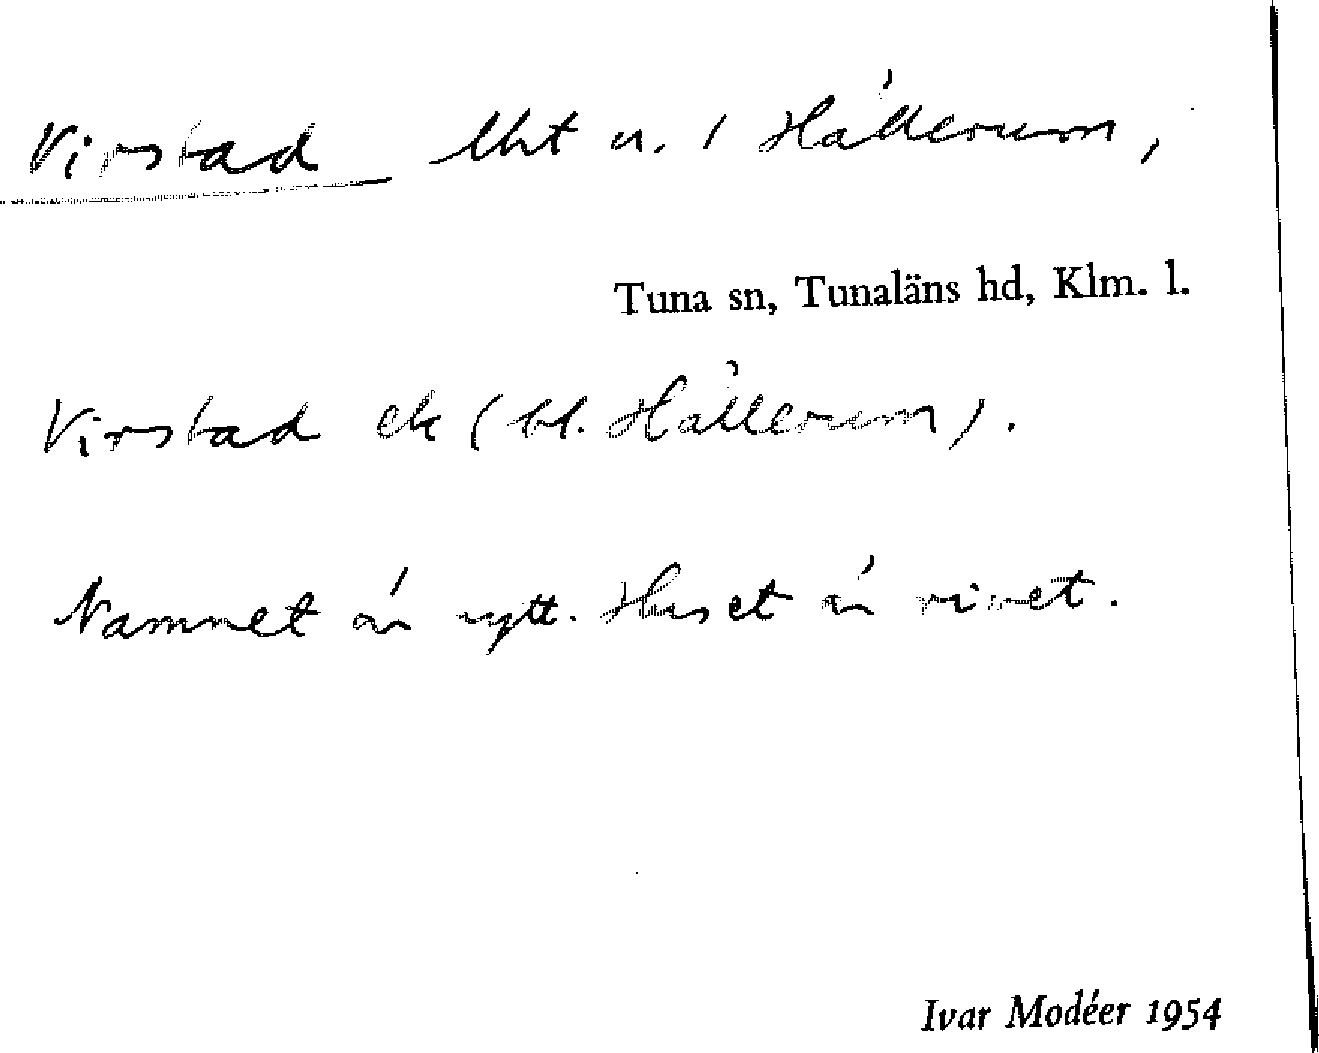 Virstad lht u. / Hållerum,
Tuna sn, Tunaläns hd, Klm. l.
Virstad ek (bl. Hållerum).
Namnet är nytt. Huset är rivet.
Ivar Modéer 1954